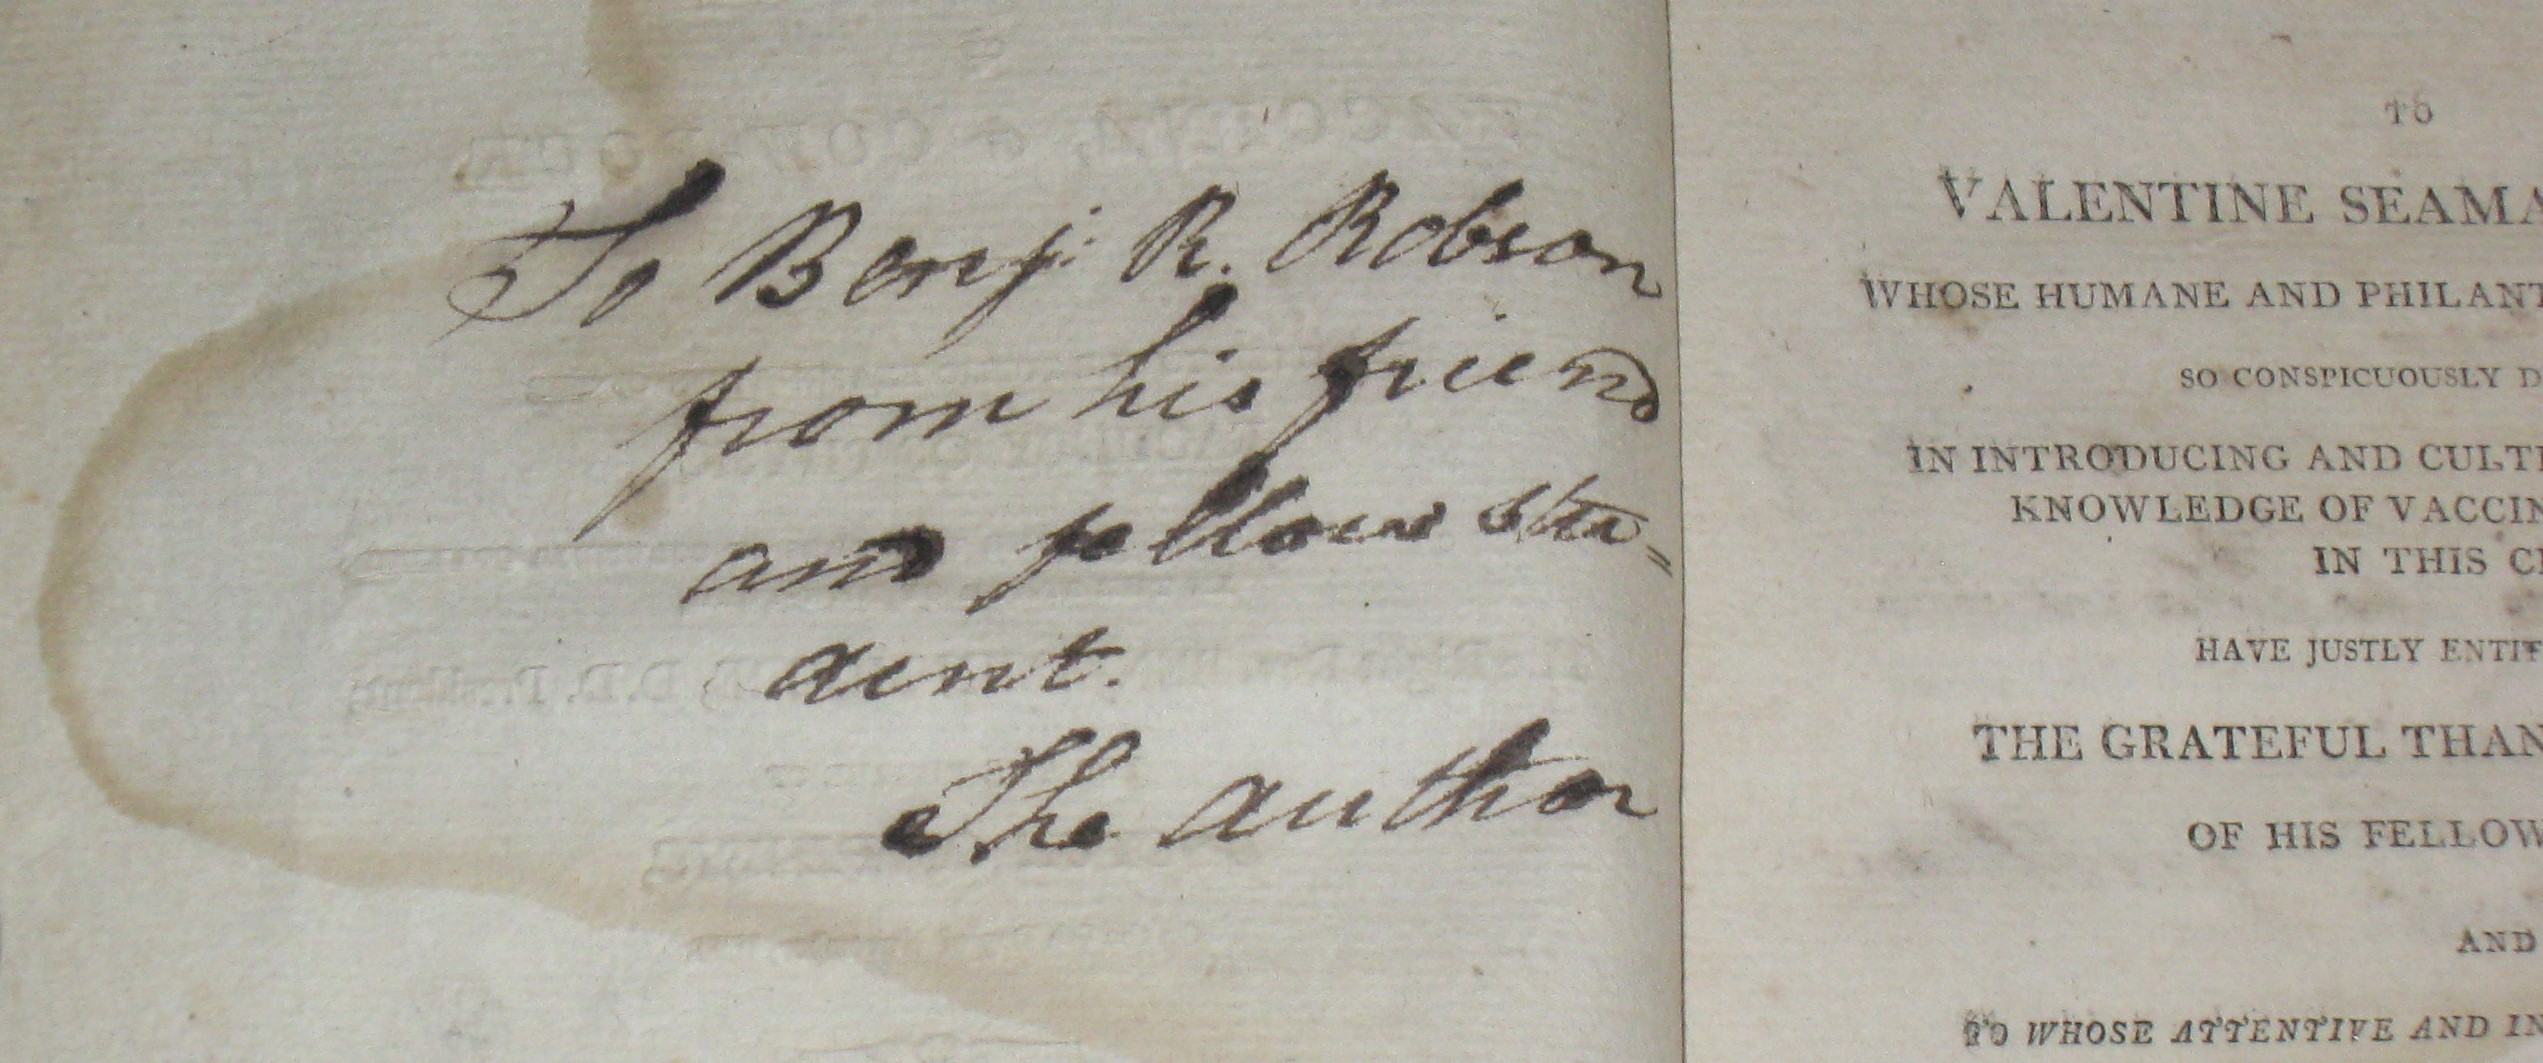 To Benj. R. Robson
from his friend
and fellow stu=
dent.
The author
TO
VALENTINE SEAMA
WHOSE HUMANE AND PHILANT
SO CONSPICUOUSLY D
IN INTRODUCING AND CULTI
KNOWLEDGE OF VACCIN
IN THIS CI
HAVE JUSTLY ENTIT
THE GRATEFUL THAN
OF HIS FELLOW
AND
TO WHOSE ATTENTIVE AND IN